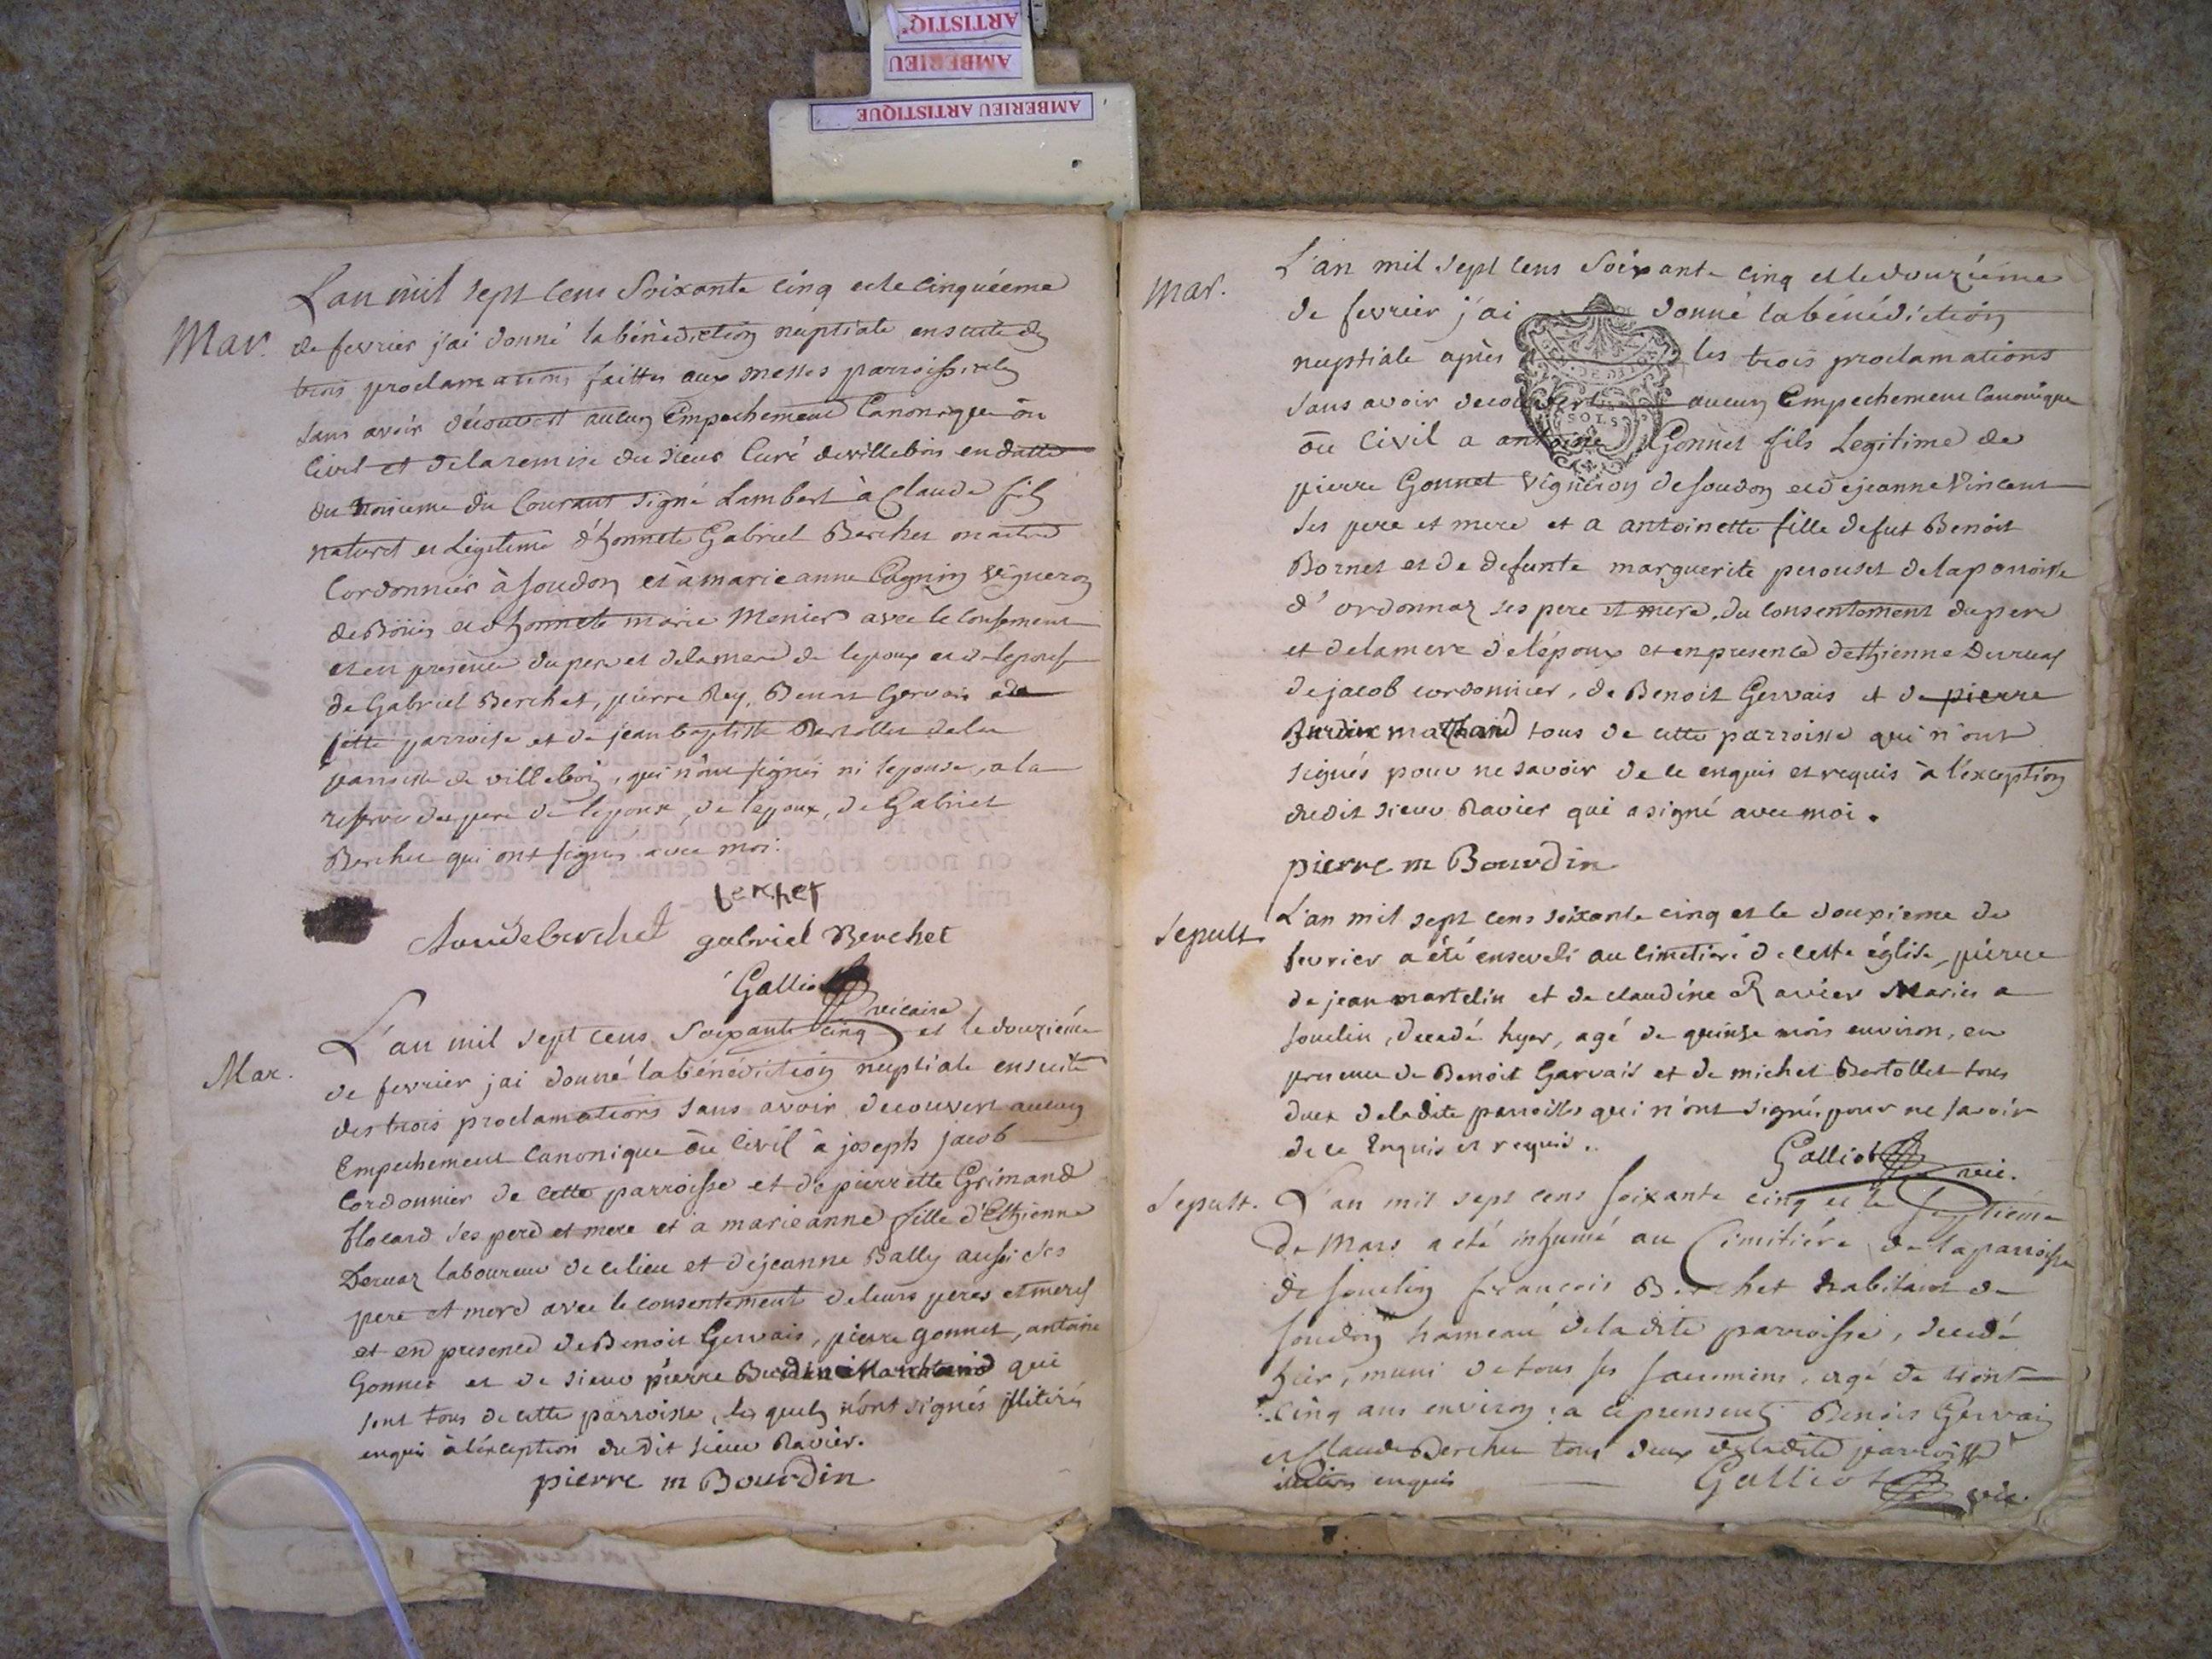 ARTISTIQ
AMBERIEU
AMBERIEU ARTISTIQUE
Mar.
L'an mil sept cens Soixante cinq et le cinquiéeme
de fevrier j'ai donné la bénédiction nuptiale ensuite des
trois proclamations faittes aux messes parroissiales
sans avoir découvert aucun Empechement Canonique ou
Civil et de la remise du sieur Curé de villebois en datte
du troisieme du Courant signé Lambert à Claude fils
naturel et Légitime d'honnete Gabriel Berchet maitre
Cordonnier à soudon et à marie anne Cagnin vigneron
de et d'honnete marie Monier avec le consentement
et en presence du pere et de la mere de l'epoux et de l'epouse
de Gabriel Berchet, pierre Rey, Benoit Gervais de
cette parroisse et de jean baptiste Bertollet de la
parroisse de villebois, qui n'ont signés ni l'epouse, a la
reserve du pere de l'epoux, de l'epoux, de Gabriel
Berchet qui ont signés avec moi.
berchet
Claude berchet gabriel Berchet
Galliot
vicaire
Mar.
L'an mil sept cens Soixante cinq et le douziéme
de fevrier j'ai donné la bénédiction nuptiale ensuite
des trois proclamations sans avoir decouvert aucun
Empechement Canonique ou Civil à joseph jacob
Cordonnier de cette parroisse et de pierrette Grimand
flocard ses pere et mere et a marie anne fille d'Ethienne
Dervaz laboureur de ce lieu et de jeanne Bally aussi ses
pere et mere avec le consentement de leurs peres et meres
et en presence de Benoit Gervais, pierre gonnet, antoine
Gonnet et de sieur pierre Burdin Marchand qui
sont tous de cette parroisse, les quels n'ont signés illitérés
enquis à l'exception du dit sieur Ravier.
pierre m Bourdin
Mar.
L'an mil sept cens Soixante cinq et le douziéme
de fevrier j'ai donné la bénédiction
nuptiale après les trois proclamations
sans avoir decouvert aucun Empechement Canonique
ou Civil a antoine Gonnet fils Legitime de
pierre Gonnet vigneron de soudon et de jeanne Vincent
ses pere et mere et a antoinette fille de fut Benoit
Bornet et de defunte marguerite perouset de la parroisse
d'ordonnaz ses pere et mere, du consentement du pere
et de la mere de l'époux et en presence d'ethienne Dervaz
de jacob cordonnier, de Benoit Gervais et de pierre
Burdin marchand tous de cette parroisse qui n'ont
signés pour ne savoir de ce enquis et requis à l'exception
du dit sieur Ravier qui a signé avec moi.
pierre m Bourdin
Sepult.
L'an mil sept cens soixante cinq et le douxieme de
fevrier a été enseveli au cimetiere de cette église, pierre
de jean martelin et de claudine Ravier Mariés a
souclin, decedé hyer, agé de quinse mois environ, en
presence de Benoit Garvais et de michel Bertollet tous
deux de la dite parroisse qui n'ont signés pour ne savoir
de ce Enquis et requis.
Galliot
vic.
Sepult.
L'an mil sept cens soixante cinq et le septiéme
de Mars a été inhumé au Cimitiére de la parroisse
de souclin francois Berchet habitant de
soudon hameau de la dite parroisse, decedé
hier, muni de tous ses sacremens, agé de trente
cinq ans environ: a ce presents Benois Gervais
et Claude Berchet tous deux de la dite parroisse
illitéres enquis
Galliot
vic.